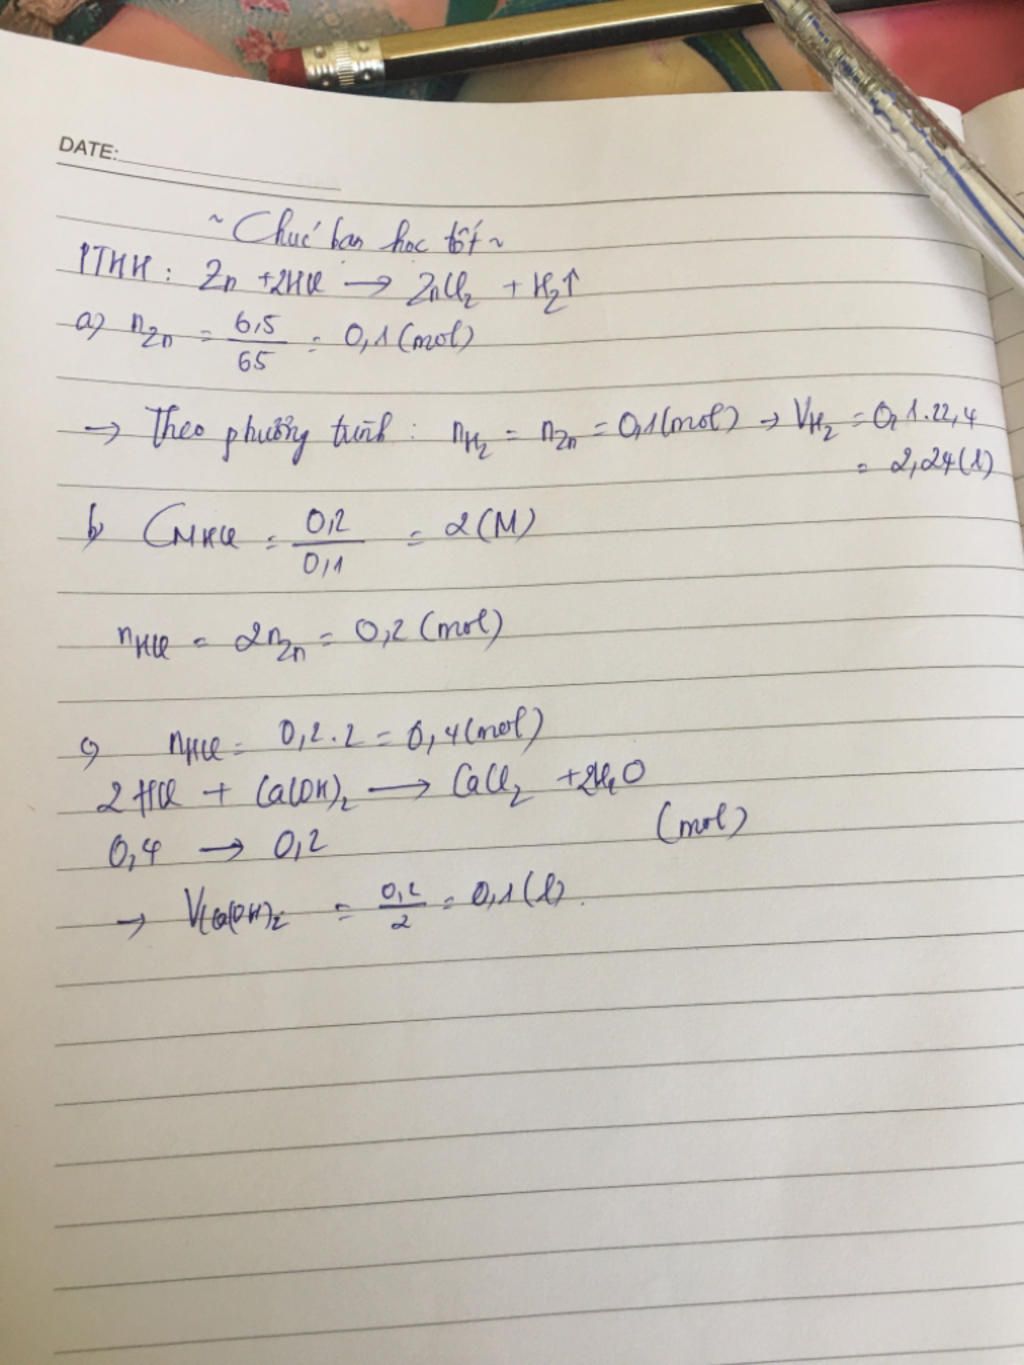 DATE:
~ Chúc bạn học tốt ~
PTHH : Zn + 2HCl → ZnCl₂ + H₂↑
a) nZn = 6,5/65 = 0,1 (mol)
→ Theo phương trình : nH₂ = nZn = 0,1 (mol) → VH₂ = 0,1.22,4
= 2,24 (l)
b) CMHCl = 0,2/0,1 = 2 (M)
nHCl = 2nZn = 0,2 (mol)
c) nHCl = 0,2.2 = 0,4 (mol)
2HCl + Ca(OH)₂ → CaCl₂ + 2H₂O
0,4 → 0,2 (mol)
→ VCa(OH)₂ = 0,2/2 = 0,1 (l).